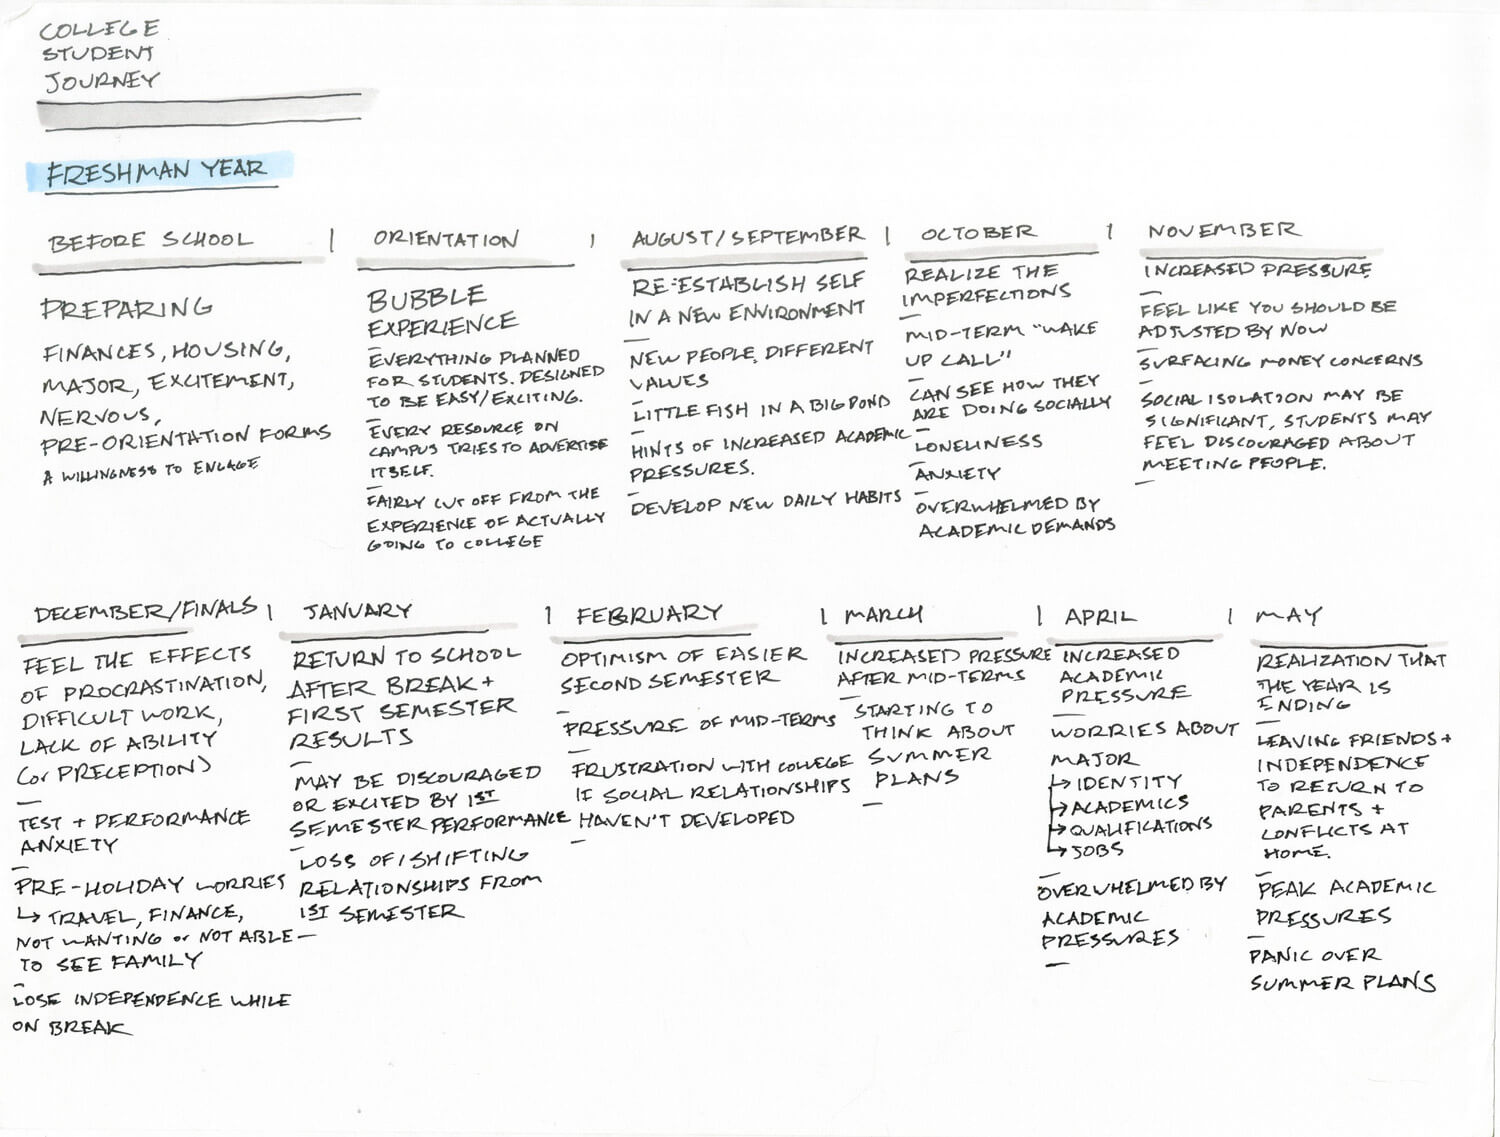 COLLEGE
STUDENT
JOURNEY
FRESHMAN YEAR
BEFORE SCHOOL
PREPARING
FINANCES, HOUSING,
MAJOR, EXCITEMENT,
NERVOUS,
PRE-ORIENTATION FORMS
A WILLINGNESS TO ENGAGE
ORIENTATION
BUBBLE
EXPERIENCE
EVERYTHING PLANNED
FOR STUDENTS. DESIGNED
TO BE EASY/EXCITING.
EVERY RESOURCE ON
CAMPUS TRIES TO ADVERTISE
ITSELF.
FAIRLY CUT OFF FROM THE
EXPERIENCE OF ACTUALLY
GOING TO COLLEGE
AUGUST/SEPTEMBER
RE-ESTABLISH SELF
IN A NEW ENVIRONMENT
NEW PEOPLE, DIFFERENT
VALUES
LITTLE FISH IN A BIG POND
HINTS OF INCREASED ACADEMIC
PRESSURES.
DEVELOP NEW DAILY HABITS
OCTOBER
REALIZE THE
IMPERFECTIONS
MID-TERM "WAKE
UP CALL"
CAN SEE HOW THEY
ARE DOING SOCIALLY
LONELINESS
ANXIETY
OVERWHELMED BY
ACADEMIC DEMANDS
NOVEMBER
INCREASED PRESSURE
FEEL LIKE YOU SHOULD BE
ADJUSTED BY NOW
SURFACING MONEY CONCERNS
SOCIAL ISOLATION MAY BE
SIGNIFICANT, STUDENTS MAY
FEEL DISCOURAGED ABOUT
MEETING PEOPLE.
DECEMBER/FINALS
FEEL THE EFFECTS
OF PROCRASTINATION,
DIFFICULT WORK,
LACK OF ABILITY
(or PRECEPTION)
TEST + PERFORMANCE
ANXIETY
PRE-HOLIDAY WORRIES
↳ TRAVEL, FINANCE,
NOT WANTING or NOT ABLE
TO SEE FAMILY
LOSE INDEPENDENCE WHILE
ON BREAK
JANUARY
RETURN TO SCHOOL
AFTER BREAK +
FIRST SEMESTER
RESULTS
MAY BE DISCOURAGED
OR EXCITED BY 1ST
SEMESTER PERFORMANCE
LOSS OF/SHIFTING
RELATIONSHIPS FROM
1ST SEMESTER
FEBRUARY
OPTIMISM OF EASIER
SECOND SEMESTER
PRESSURE OF MID-TERMS
FRUSTRATION WITH COLLEGE
IF SOCIAL RELATIONSHIPS
HAVEN'T DEVELOPED
MARCH
INCREASED PRESSURE
AFTER MID-TERMS
STARTING TO
THINK ABOUT
SUMMER
PLANS
APRIL
INCREASED
ACADEMIC
PRESSURE
WORRIES ABOUT
MAJOR
↳ IDENTITY
↳ ACADEMICS
↳ QUALIFICATIONS
↳ JOBS
OVERWHELMED BY
ACADEMIC
PRESSURES
MAY
REALIZATION THAT
THE YEAR IS
ENDING
LEAVING FRIENDS +
INDEPENDENCE
TO RETURN TO
PARENTS +
CONFLICTS AT
HOME.
PEAK ACADEMIC
PRESSURES
PANIC OVER
SUMMER PLANS